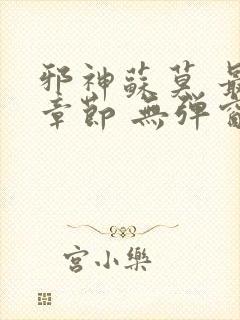 邪神蘇莫 最
章節 無彈窗
宮小樂